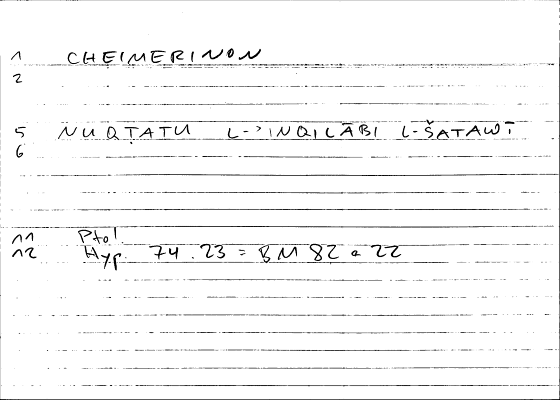 1 CHEIMERINON
2
5 NUQṬATU L-ʾINQILĀBI L-ŠATAWĪ
6
11 Ptol.
12 Hyp. 74.23 = BM 82 a 22